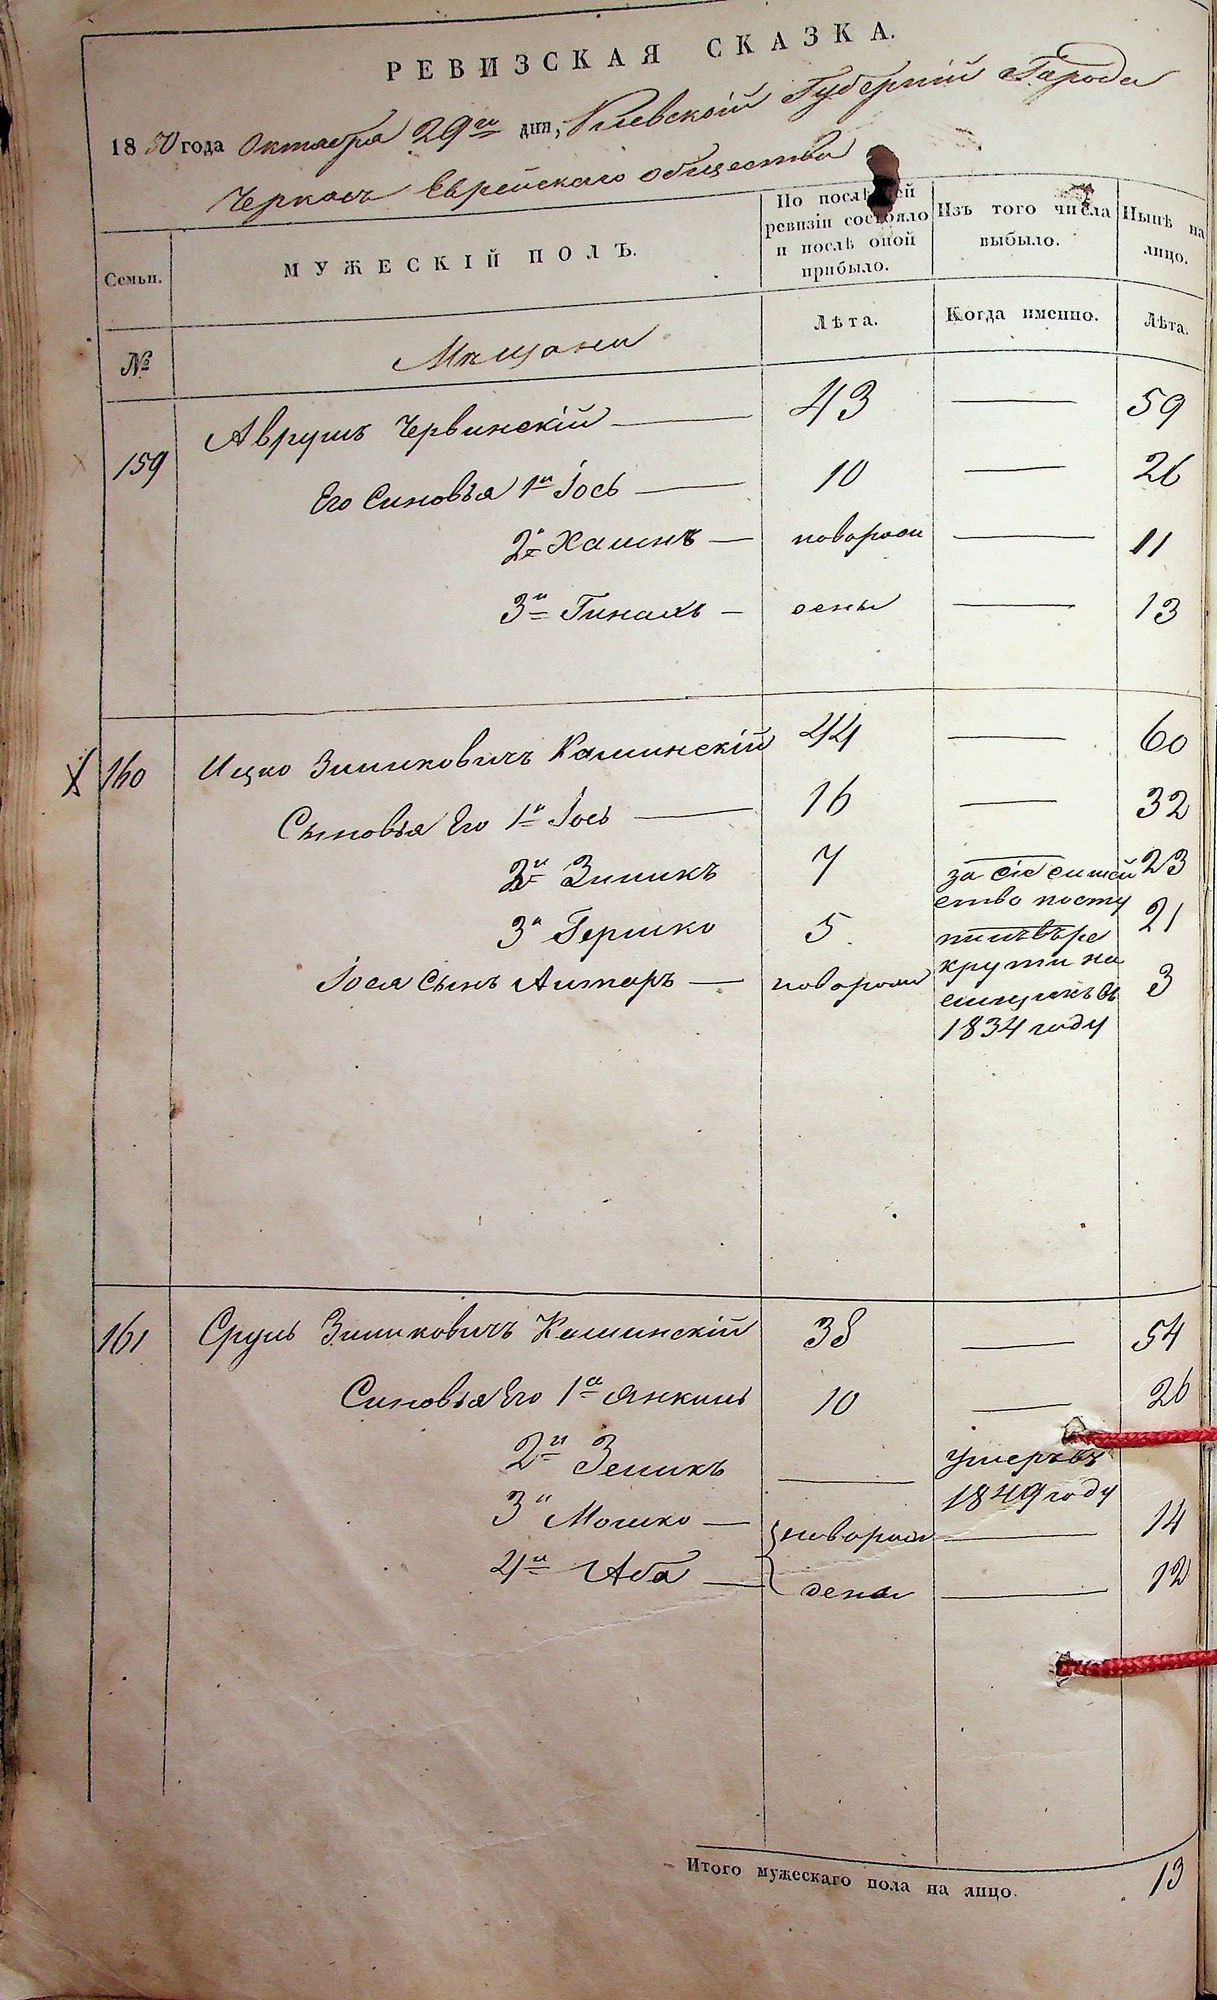 РЕВИЗСКАЯ СКАЗКА.
1850 года Октября 29го дня, Киевской Губерніи Города
Черкасъ Еврейскаго общества
Семьи. МУЖЕСКІЙ ПОЛЪ. По послѣдней ревизіи состояло и послѣ оной прибыло. Изъ того числа выбыло. Нынѣ на лицо.
№ Мѣщани Лѣта. Когда именно. Лѣта.
159 Аврумъ Червинскій 43 59
Его Синовья 1й Іось 10 26
2й Хаимъ новорож 11
3й Пинахъ дены 13
160 Ицко Зимиковичъ Каминскій 44 60
Сыновья Его 1й Іось 16 32
2й Зимикъ 7 23
3й Гершко 5. 21
Іося сынъ новорож 3
за сіе семей
ство посту
пилъ въ ре
круты на
емщикъ въ
1834 году
161 Сруль Зимиковичъ Каминскій 38 54
Синовья Его 1й Янкиль 10 26
2й Земикъ умеръ въ
1849 году
3й Мошко новорож 14
4й Аба дены 12
Итого мужескаго пола на лицо. 13